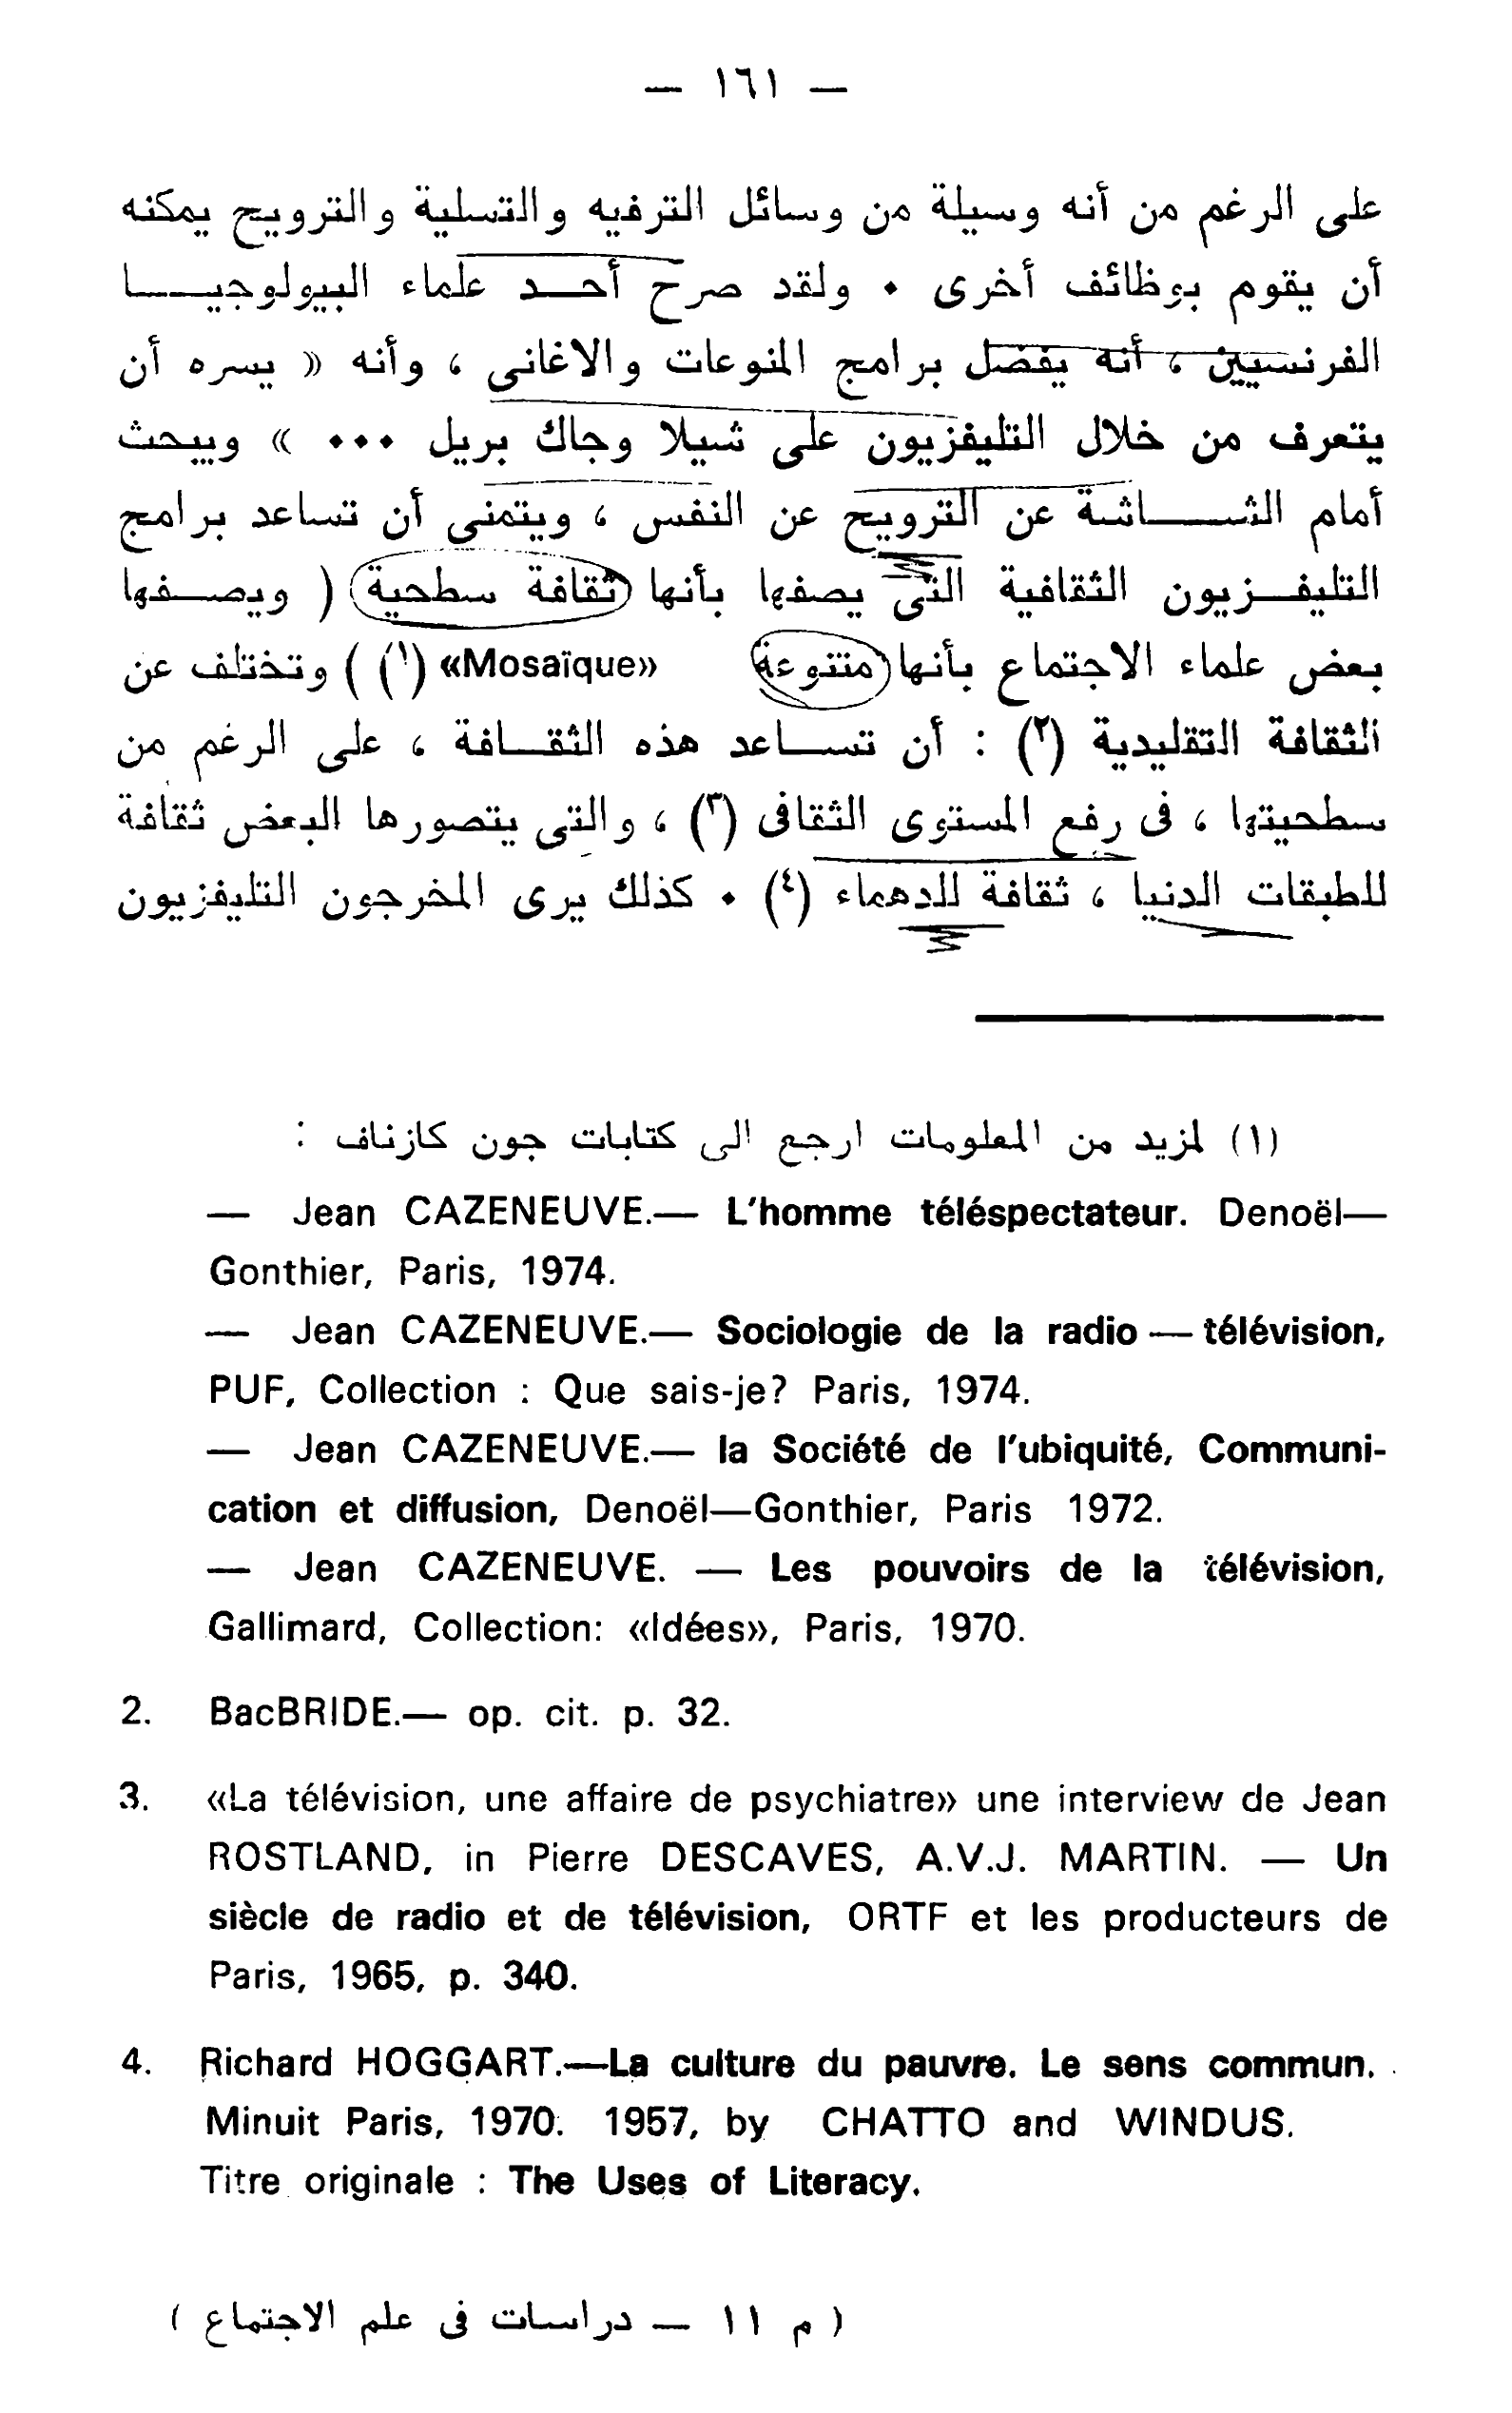 — ١٦١ —
على الرغم من أنه وسيلة من وسائل الترفيه والتسلية والترويح يمكنه
أن يقوم بوظائف أخرى . ولقد صرح أحد علماء البيولوجيا
الفرنسيين ، أنه يفضل برامج المنوعات والاغانى ، وأنه « يسره أن
يتعرف من خلال التليفزيون على شيلا وجاك بريل ... » ويبحث
أمام الشاشة عن الترويح عن النفس ، ويتمنى أن تساعد برامج
التليفزيون الثقافية التى يصفها بأنها ثقافة سطحية ( ويصفها
بعض علماء الاجتماع بأنها متنوعة «Mosaïque» (١) ) وتختلف عن
الثقافة التقليدية (٢) : أن تساعد هذه الثقافة ، على الرغم من
سطحيتها ، فى رفع المستوى الثقافى (٣) ، والتى يتصورها البعض ثقافة
للطبقات الدنيا ، ثقافة للدهماء (٤) . كذلك يرى المخرجون التليفزيون
(١) لمزيد من المعلومات ارجع الى كتابات جون كازناف :
— Jean CAZENEUVE.— L'homme téléspectateur. Denoël—
Gonthier, Paris, 1974.
— Jean CAZENEUVE.— Sociologie de la radio — télévision,
PUF, Collection : Que sais-je? Paris, 1974.
— Jean CAZENEUVE.— la Société de l'ubiquité, Communi-
cation et diffusion, Denoël—Gonthier, Paris 1972.
— Jean CAZENEUVE. — Les pouvoirs de la télévision,
Gallimard, Collection: «Idées», Paris, 1970.
2. BacBRIDE.— op. cit. p. 32.
3. «La télévision, une affaire de psychiatre» une interview de Jean
ROSTLAND, in Pierre DESCAVES, A.V.J. MARTIN. — Un
siècle de radio et de télévision, ORTF et les producteurs de
Paris, 1965, p. 340.
4. Richard HOGGART.—La culture du pauvre. Le sens commun.
Minuit Paris, 1970. 1957, by CHATTO and WINDUS.
Titre originale : The Uses of Literacy.
( م ١١ — دراسات فى علم الاجتماع )